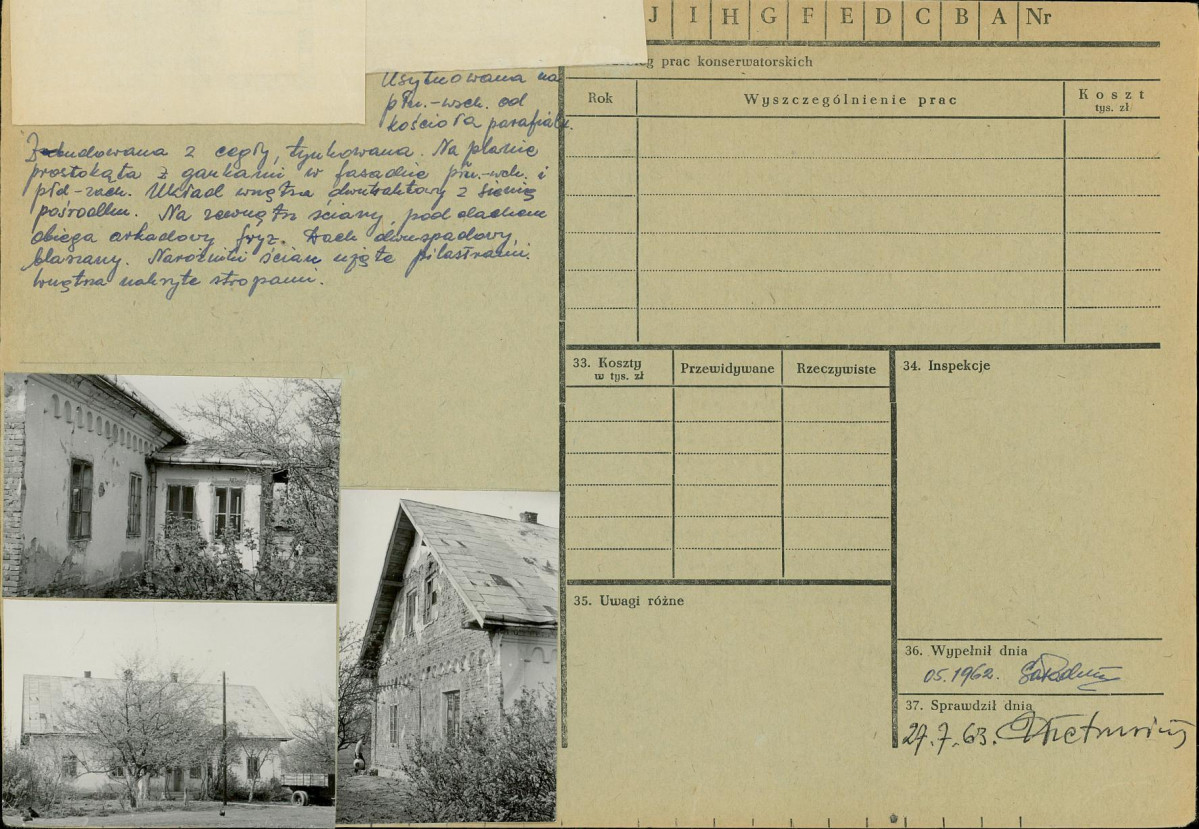 J I H G F E D C B A Nr
prac konserwatorskich
Rok Wyszczególnienie prac Koszt
tys. zł
Usytuowana na
płn.-wsch. od
kościoła parafialn.
Zbudowana z cegły, tynkowana. Na planie
prostokąta z gankami w fasadzie płn.-wch. i
płd-zach. Układ wnętrza dwutraktowy z sienią
pośrodku. Na zewnątrz ściany, pod dachem
obiega arkadowy fryz. Dach dwuspadowy
blaszany. Narożniki ścian ujęte pilastrami.
Wnętrza nakryte stropami.
33. Koszty
w tys. zł
Przewidywane
Rzeczywiste
34. Inspekcje
35. Uwagi różne
36. Wypełnił dnia
05.1962.
37. Sprawdził dnia
27.7.63.